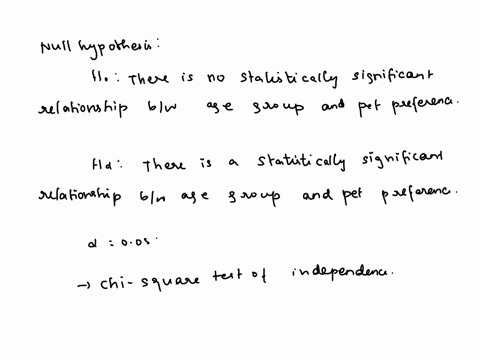 Null hypothesis:
H₀: There is no statistically significant
relationship b/w age group and pet preferenc.
Hα: There is a statistically significant
relationship b/w age group and pet preferenc.
α = 0.05.
→ Chi-square test of independenc.